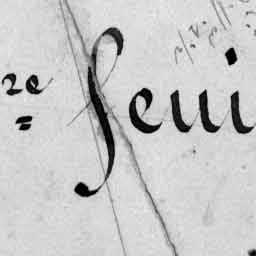 2e feui